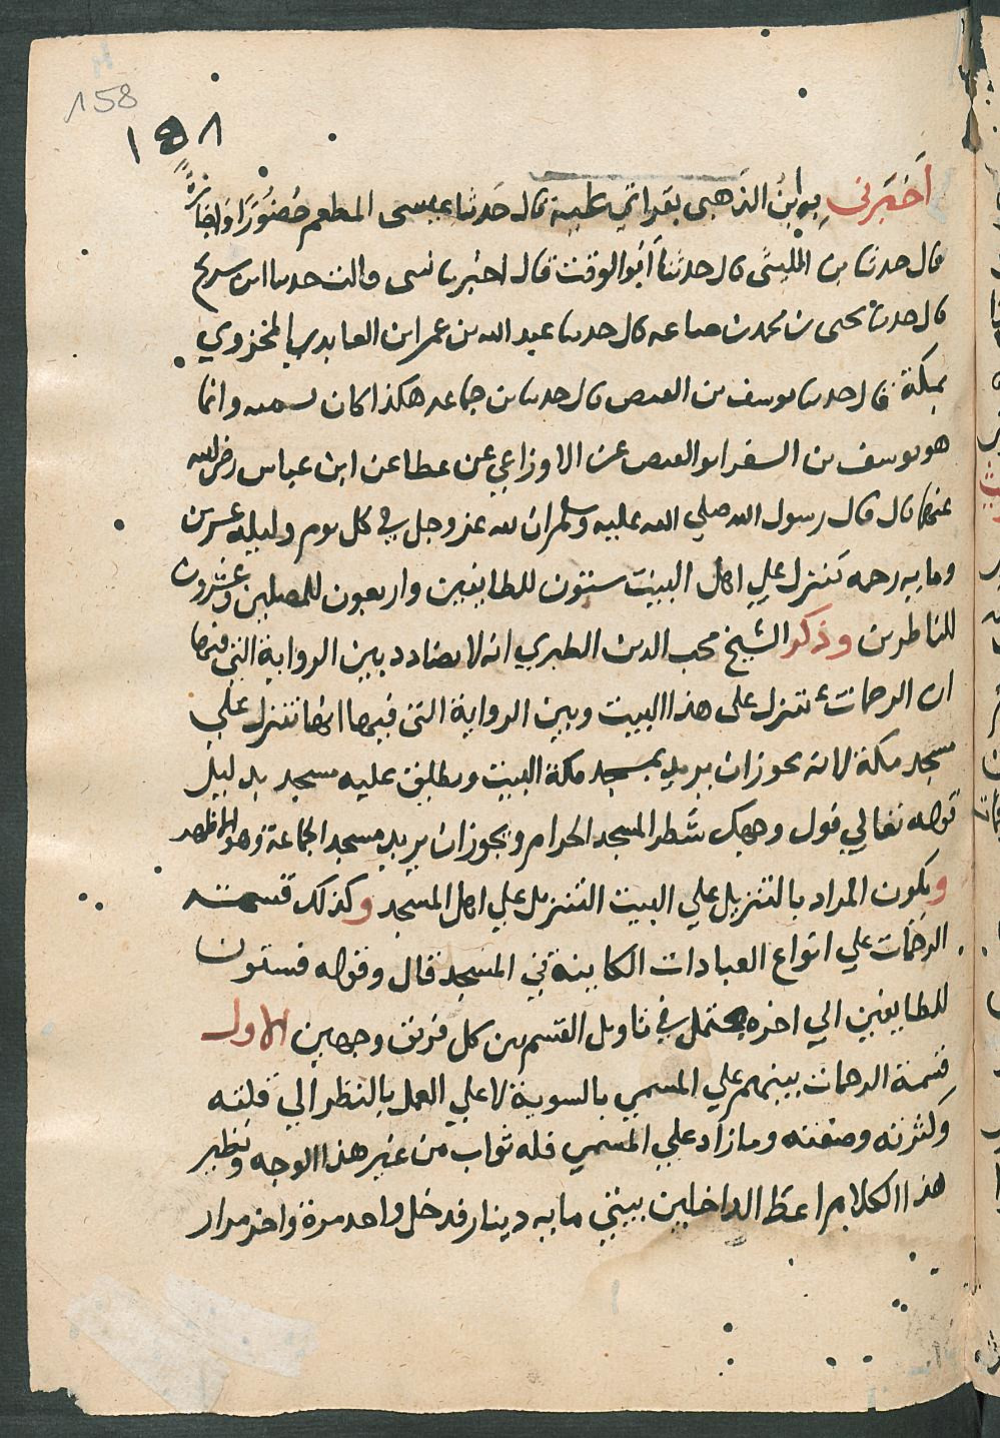 158
١٥٨
أخبرني به ابن الذهبي بقراتي عليه قال حدثنا عيسى المطعم حضورا واجازة
قال حدثنا بن الليثي قال حدثنا أبو الوقت قال اخبرتنا قالت حدثنا ابن سريح
قال حدثنا يحيى بن محمد بن صاعد قال حدثنا عبد الله بن عمران العابدي المخزومي
بمكة قال حدثنا يوسف بن الفيض قال حدثنا بن جماعه هكذا كان يسميه وانما
هو يوسف بن السفر ابو الفيض عن الاوزاعي عن عطا عن ابن عباس رضي الله
عنهما قال قال رسول الله صلي الله عليه وسلم ان لله عز وجل في كل يوم وليله عشرين
ومايه رحمه تنزل علي اهل البيت ستون للطايفين واربعون للمصلين وعشرون
للناظرين وذكر الشيخ محب الدين الطبري انه لا تضادد بين الرواية التي فيها
ان الرحمات تنزل على هذا البيت وبين الرواية التي فيها انها تنزل علي
مسجد مكة لانه يجوز ان يريد بمسجد مكة البيت ويطلق عليه مسجد بدليل
قوله تعالي فول وجهك شطر المسجد الحرام ويجوز ان يريد مسجد الجماعة وهو الاظهر
ويكون المراد بالتنزيل علي البيت التنزيل علي اهل المسجد وكذلك قسمت
الرحمات علي انواع العبادات الكاينة في المسجد قال وقوله فستون
للطايفين الي اخره يحتمل في تاويل القسم بين كل فريق وجهين الاول
قسمة الرحمات بينهم علي المسمي بالسوية لا علي العمل بالنظر الي قلته
وكثرته وصفته وما زاد علي المسمي فله ثواب من غير هذا الوجه ونظير
هذا الكلام اعط الداخلين بيتي مايه دينار فدخل واحد مرة واخر مرار